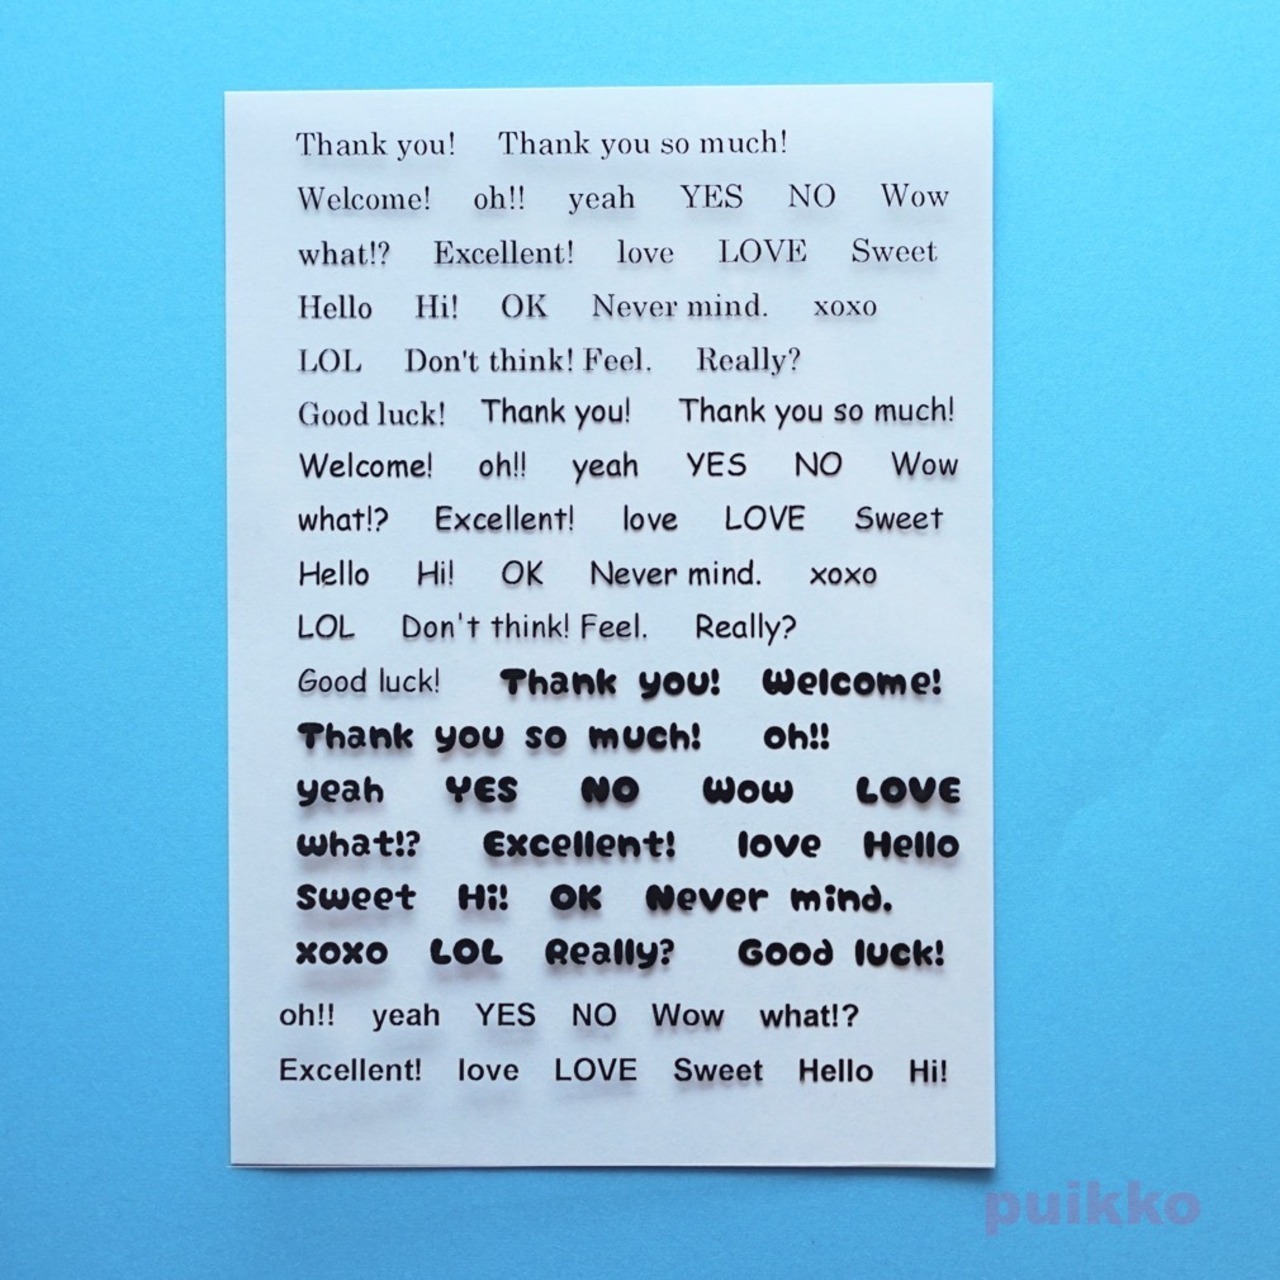 Thank you! Thank you so much!
Welcome! oh!! yeah YES NO Wow
what!? Excellent! love LOVE Sweet
Hello Hi! OK Never mind. xoxo
LOL Don't think! Feel. Really?
Good luck! Thank you! Thank you so much!
Welcome! oh!! yeah YES NO Wow
what!? Excellent! love LOVE Sweet
Hello Hi! OK Never mind. xoxo
LOL Don't think! Feel. Really?
Good luck! Thank you! Welcome!
Thank you so much! oh!!
yeah YES NO Wow LOVE
what!? Excellent! love Hello
Sweet Hi! OK Never mind.
xoxo LOL Really? Good luck!
oh!! yeah YES NO Wow what!?
Excellent! love LOVE Sweet Hello Hi!
puikko